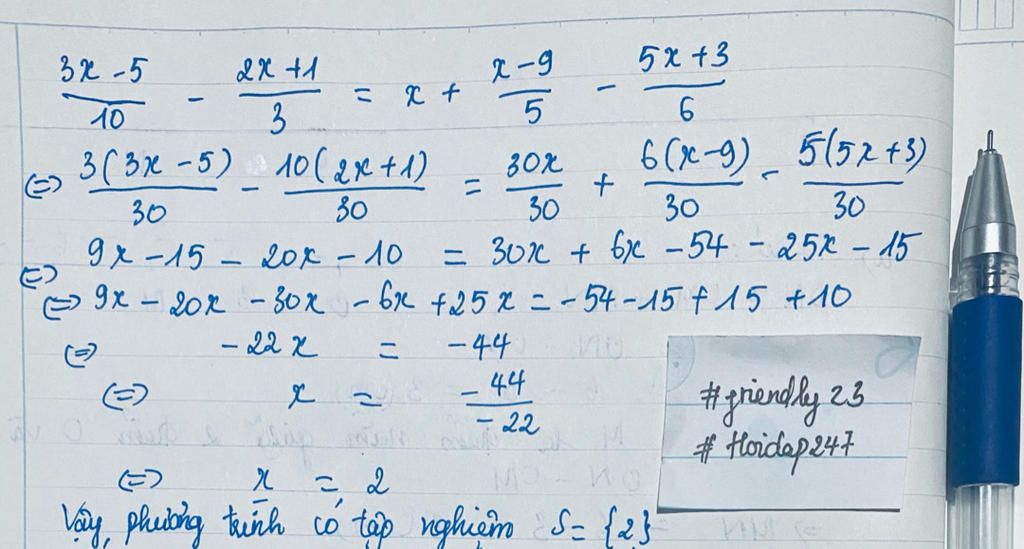 (3x - 5)/10 - (2x + 1)/3 = x + (x - 9)/5 - (5x + 3)/6
(=) 3(3x - 5)/30 - 10(2x + 1)/30 = 30x/30 + 6(x - 9)/30 - 5(5x + 3)/30
(=) 9x - 15 - 20x - 10 = 30x + 6x - 54 - 25x - 15
(=) 9x - 20x - 30x - 6x + 25x = -54 - 15 + 15 + 10
(=) -22x = -44
(=) x = -44/-22
(=) x = 2
Vậy, phương trình có tập nghiệm S = {2}
#friendly 23
# Hoidap247